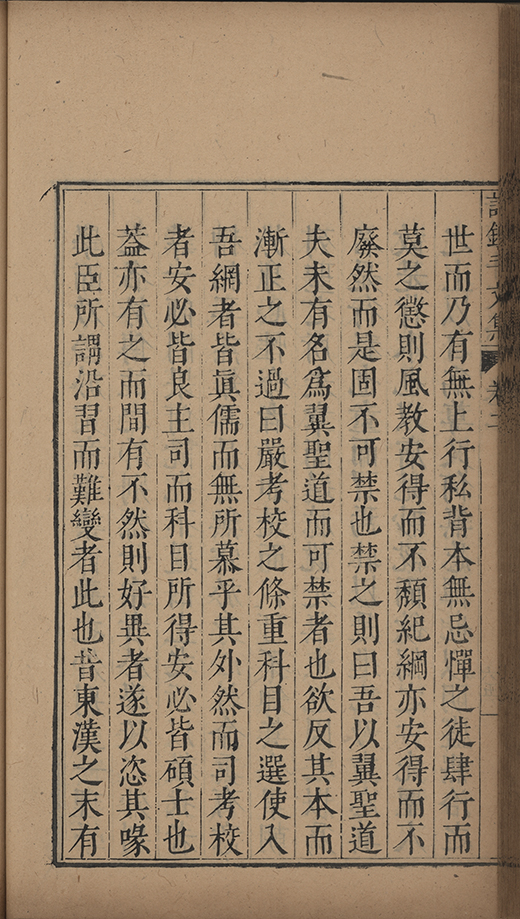 世而乃有無上行私背本無忌憚之徒肆行而
莫之懲則風教安得而不頹紀綱亦安得而不
廢然而是固不可禁也禁之則曰吾以翼聖道
夫未有名爲翼聖道而可禁者也欲反其本而
漸正之不過曰嚴考校之條重科目之選使入
吾網者皆眞儒而無所慕乎其外然而司考校
者安必皆良主司而科目所得安必皆碩士也
葢亦有之而間有不然則好異者遂以恣其喙
此臣所謂沿習而難變者此也昔東漢之末有